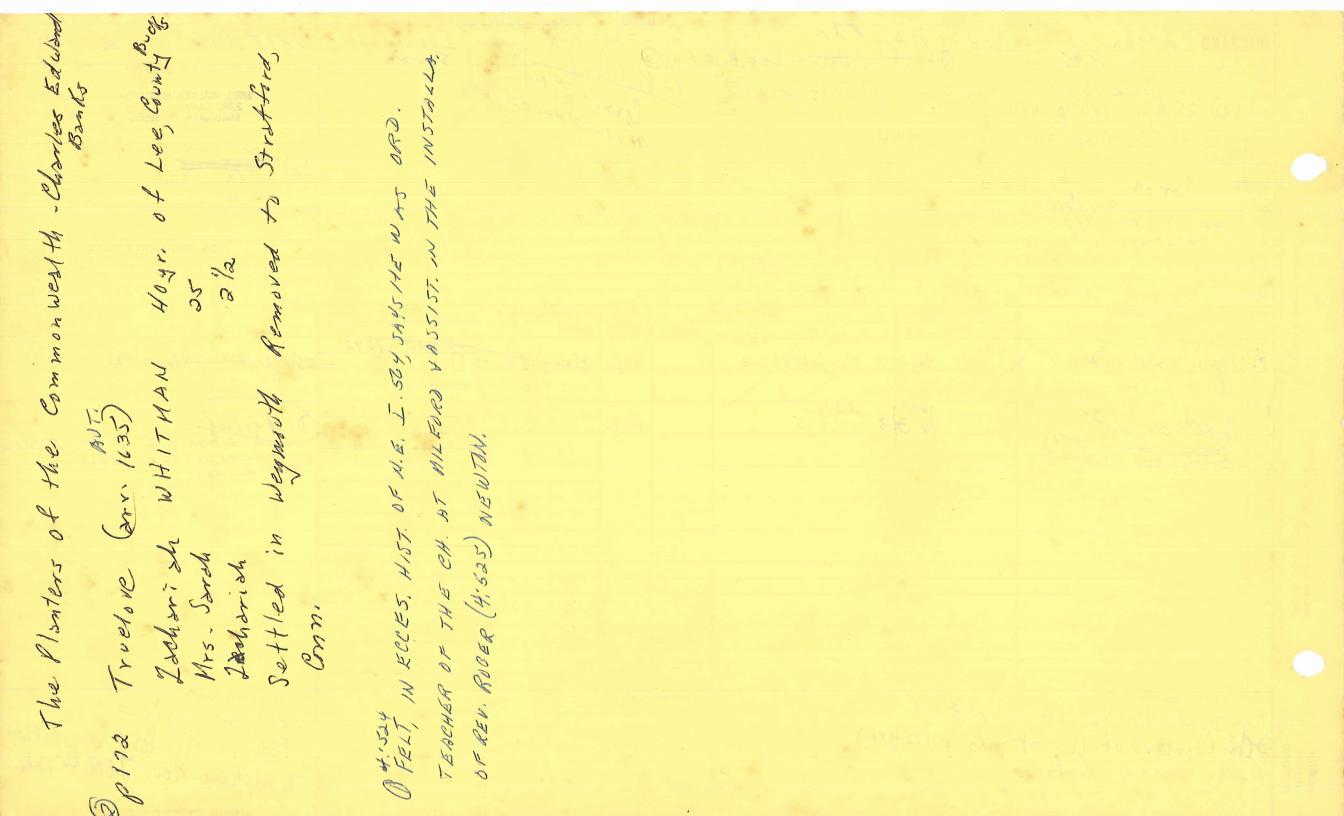 The Planters of the Commonwealth - Charles Edward
Banks
② p172 Truelove (arr. 1635)
AUT.
Zachariah WHITMAN 40yr. of Lee, County Bucks
Mrs. Sarah 25
Zachariah 2 1/2
Settled in Weymouth Removed to Stratford,
Conn.
4:524
FELT, IN ECCES. HIST. OF N.E. I.564, SAYS HE WAS ORD.
TEACHER OF THE CH. AT MILFORD & ASSIST. IN THE INSTALLA.
OF REV. ROGER (4:625) NEWTON.